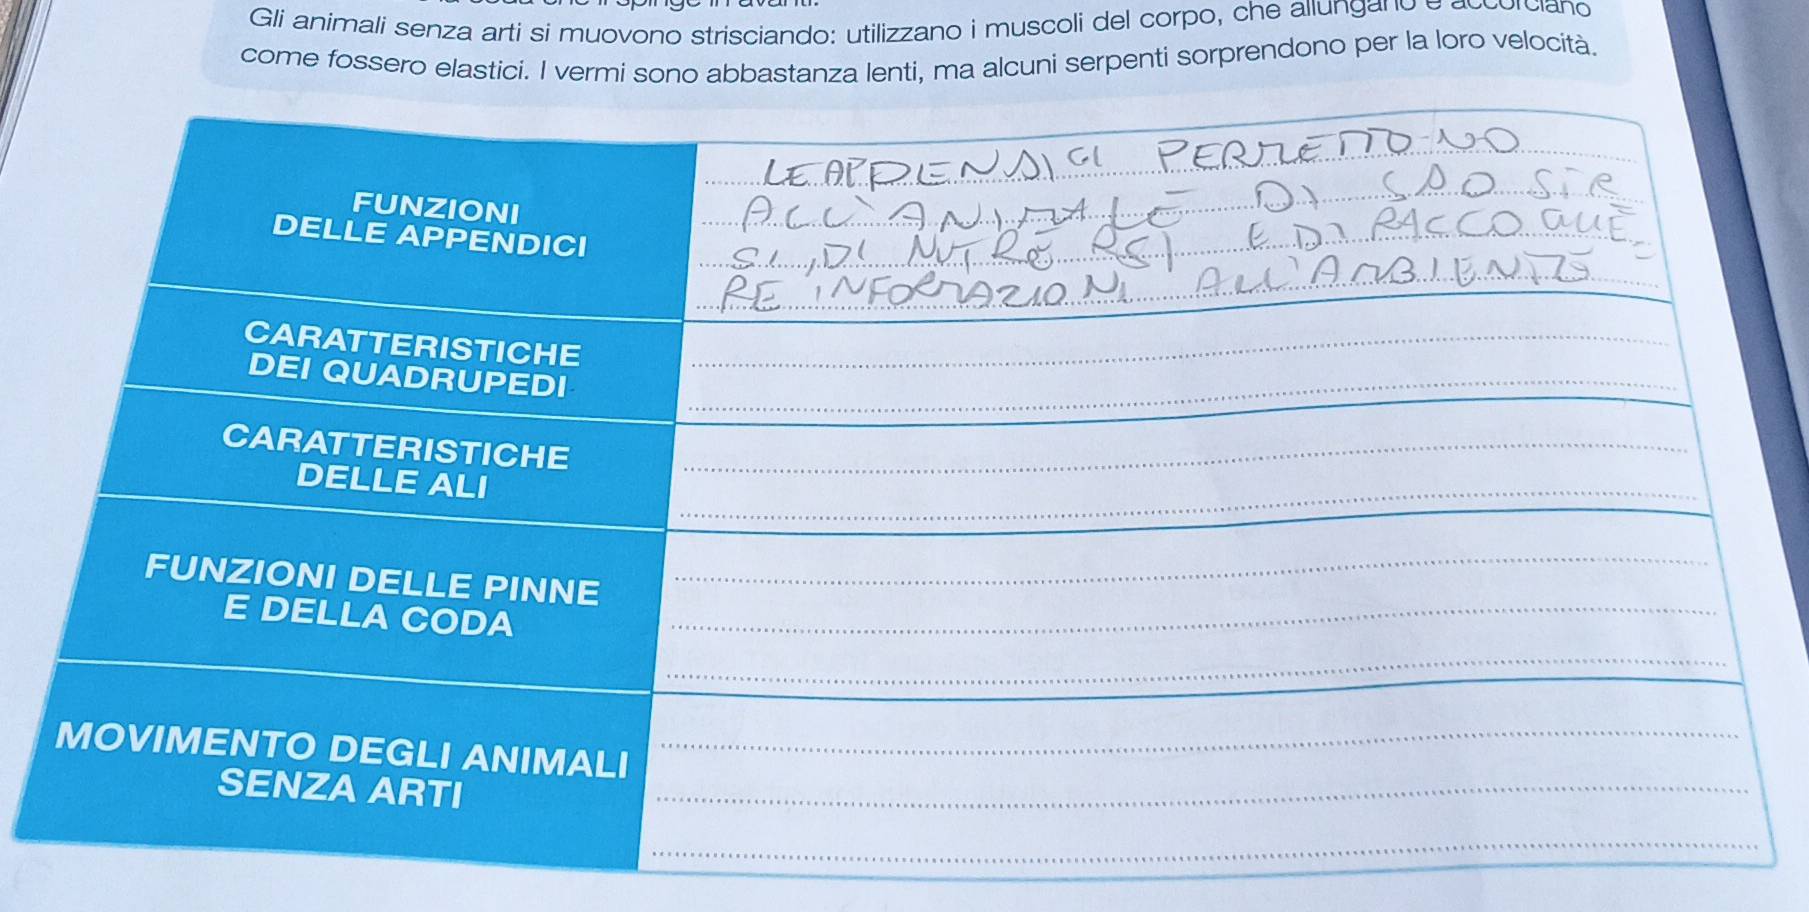 Gli animali senza arti si muovono strisciando: utilizzano i muscoli del corpo, che allungano e accorciano
come fossero elastici. I vermi sono abbastanza lenti, ma alcuni serpenti sorprendono per la loro velocità.
FUNZIONI
DELLE APPENDICI
LE APPENDICI PERMETTONO
ALL'ANIMALE DI
SI, DI NUTRIRSI E DI RACCOGLIE
RE INFORMAZIONI ALL'AMBIENTE
CARATTERISTICHE
DEI QUADRUPEDI
CARATTERISTICHE
DELLE ALI
FUNZIONI DELLE PINNE
E DELLA CODA
MOVIMENTO DEGLI ANIMALI
SENZA ARTI